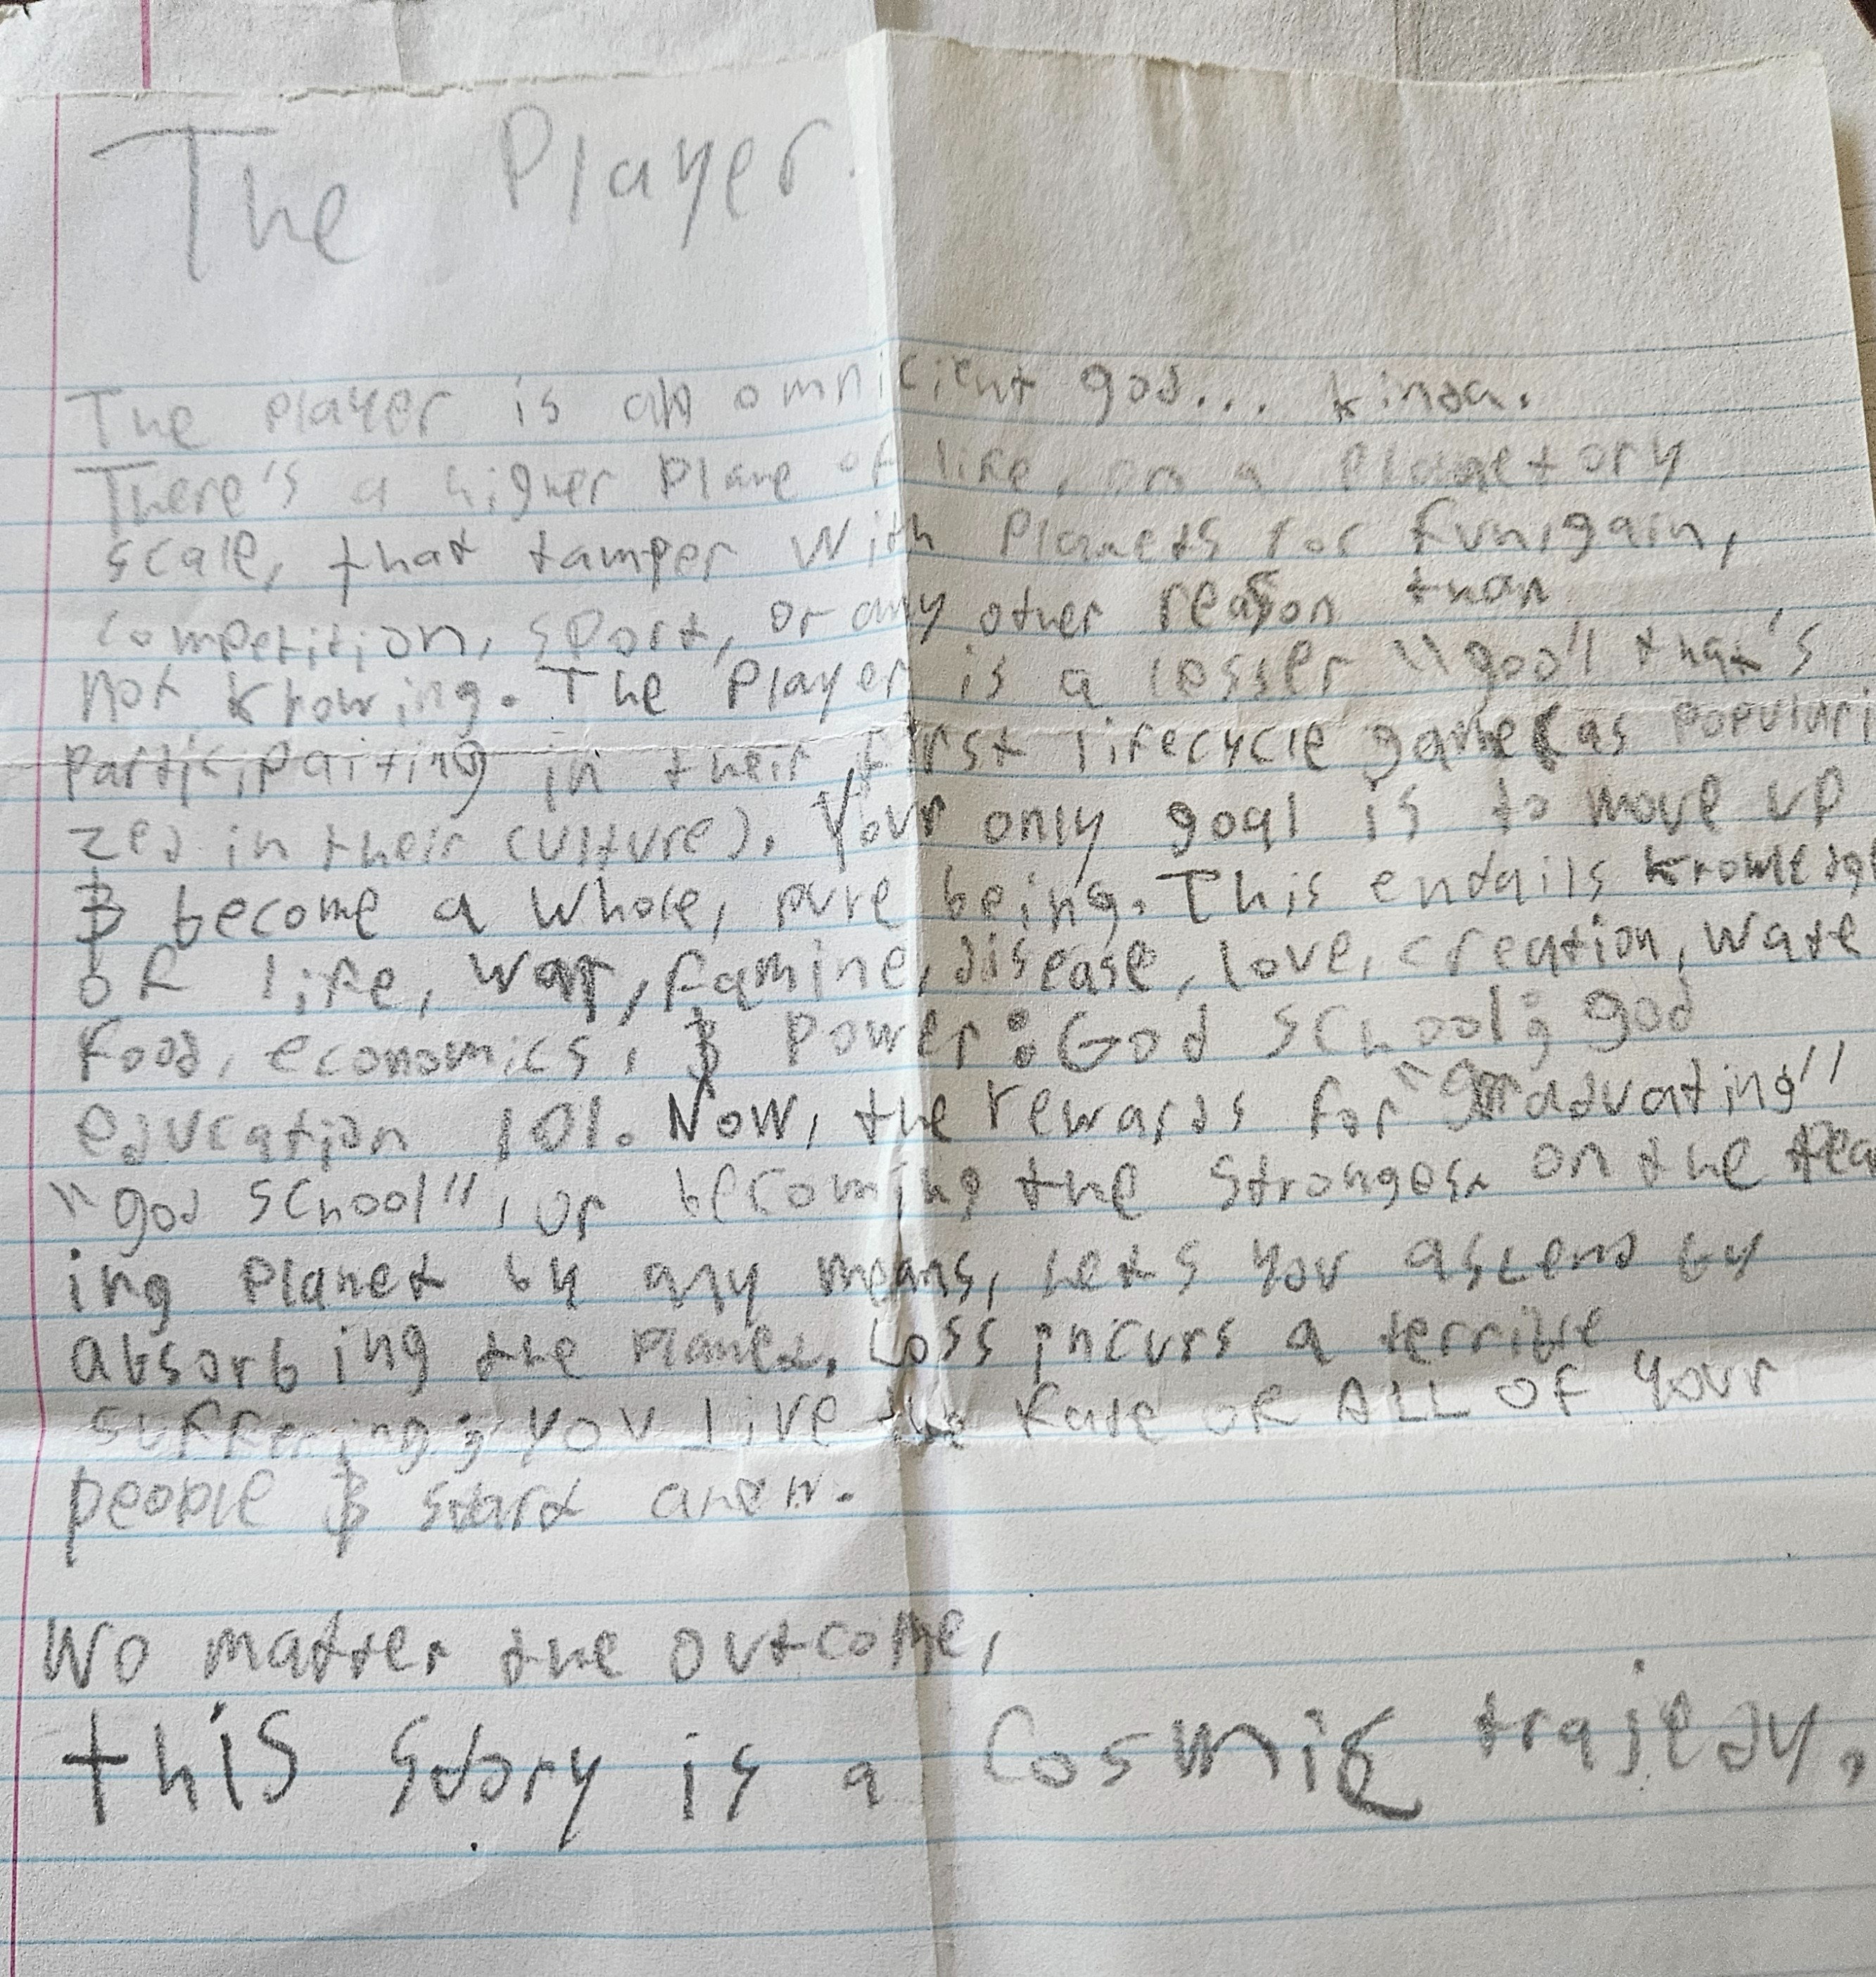 The Player.
The Player is an omnicient god... kinda.
There's a higher Plane of life, on a Planetory
scale, that tamper With Planets for fun, gain,
competition, sport, or any other reason than
not knowing. The Player is a lesser "god" that's
participaiting in their first lifecycle game (as populari
zed in their culture). Your only goal is to move up
& become a whole, pure being. This endails knowledge
of life, war, famine, disease, love, creation, wate
food, economics, & Power: God school; god
education 101. Now, the rewards for "graduating"
"god school", or becoming the strongest on the
ing Planet by any means, lets you ascend by
absorbing the Planet. Loss incurs a terrible
suffering; you live the fate of ALL OF your
people & start anew.
No matter the outcome,
this story is a Cosmic trajedy.